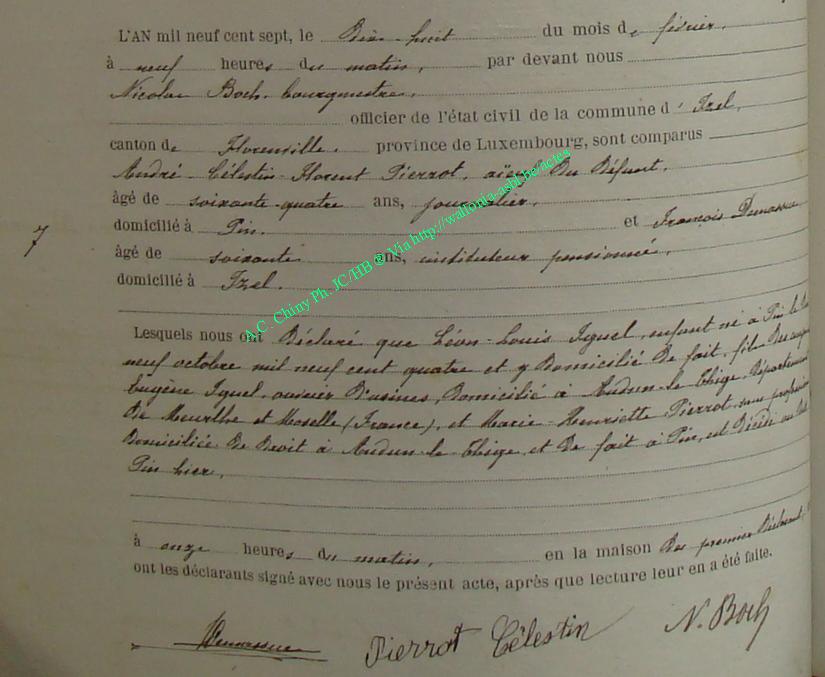 L'AN mil neuf cent sept, le Dix-huit du mois de février,
à neuf heures du matin, par devant nous
Nicolas Boch, bourgmestre,
officier de l'état civil de la commune d' Izel,
canton de Florenville, province de Luxembourg, sont comparus
André-Célestin-Florent Pierrot, aïeul Du Défunt,
âgé de soixante-quatre ans, journalier,
domicilié à Pin, et François Demassue
7
âgé de soixante ans, instituteur pensionné,
domicilié à Izel.
Lesquels nous ont Déclaré que Léon-Louis Iguel, enfant né à Pin le
neuf octobre mil neuf cent quatre et y Domicilié De fait, fils Des
Eugène Iguel, ouvrier D'usines, Domicilié à Audun-le-Thige, Département
De Meurthe et Moselle (France), et Marie-Henriette Pierrot, sans profession
Domiciliée De Droit à Audun-le-Thige, et De fait à Pin, est Décédé au
Pin hier,
à onze heures du matin, en la maison Du premier Déclarant,
ont les déclarants signé avec nous le présent acte, après que lecture leur en a été faite.
Demassue Pierrot Célestin N. Boch
A.C. Chiny Ph. JC/HB @ Via http://wallonia-asbl.be/actes